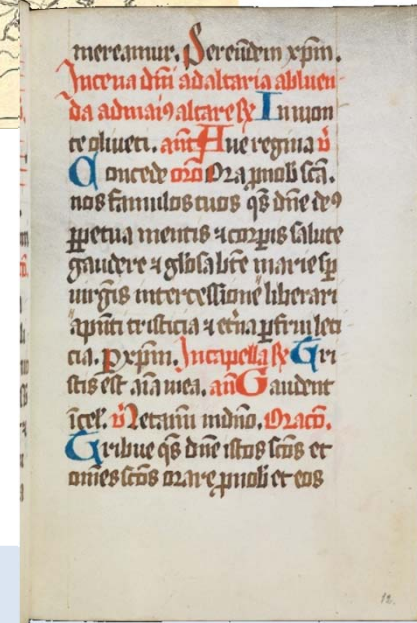 mereamur. Per eūdem xpm̄.
In cena dn̄i ad altaria abluen-
da ad maiꝯ altare ℟ In mon
te oliueti. an̄t Aue regina ℣
Concede orō Ora p nob sc̄a.
nos famulos tuos qs̄ dn̄e deꝯ
ꝑpetua mentis ⁊ corpis salute
gaudere ⁊ glōsa bt̄e marie sp̄
uirgīs intercessione liberari
a pn̄ti tristicia ⁊ et̄na ꝑfrui leti
cia. P xpm̄. In capella ℟ Tri
stis est aīa mea. an̄ Gaudent
ī cel. ℣ Letam̄ī in dn̄o. Oracō.
Tribue qs̄ dn̄e istos sc̄os et
om̄es sc̄os orare p nob et eos
12.